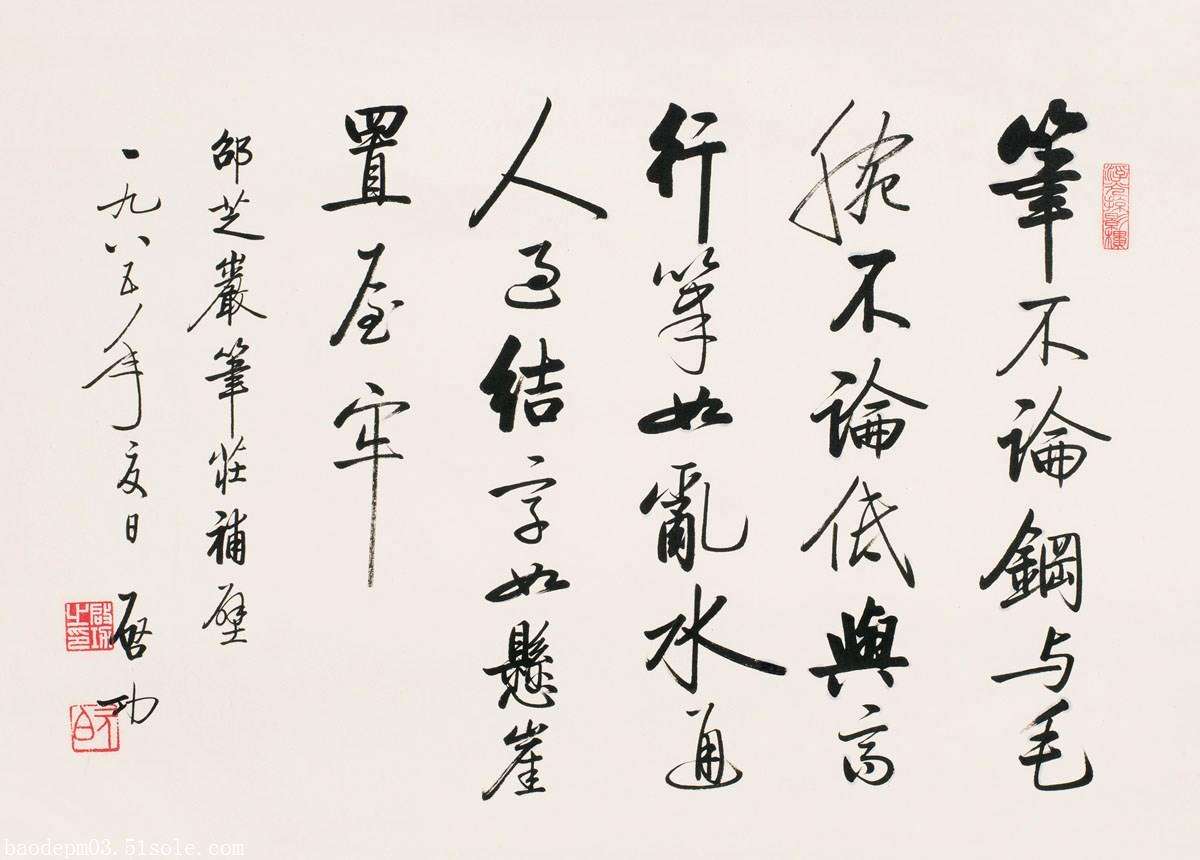 筆不論鋼与毛
腕不論低與高
行筆如亂水通
人過結字如懸崖
置屋牢
邵芝巖筆莊補壁
一九八五年夏日 啓功
啟功之印
baodepm03.51sole.com